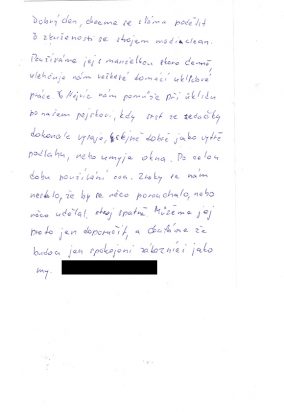 Dobrý den, chceme se s Váma podělit
o zkušenosti se strojem mediclean.
Používáme jej s manželkou skoro denně
ulehčuje nám veškeré domácí úklidové
práce. Nejvíc nám pomůže při úklidu
po našem pejskovi, kdy srst ze sedačky
dokonale vysaje, stejně dobře jako vytře
podlahu, nebo umyje okna. Po celou
dobu používání se nám
nestalo, že by se něco porouchalo, nebo
něco udělal stroj špatně. Můžeme jej
proto jen doporučit, a doufáme že
budou jen spokojení zákazníci jako
my.